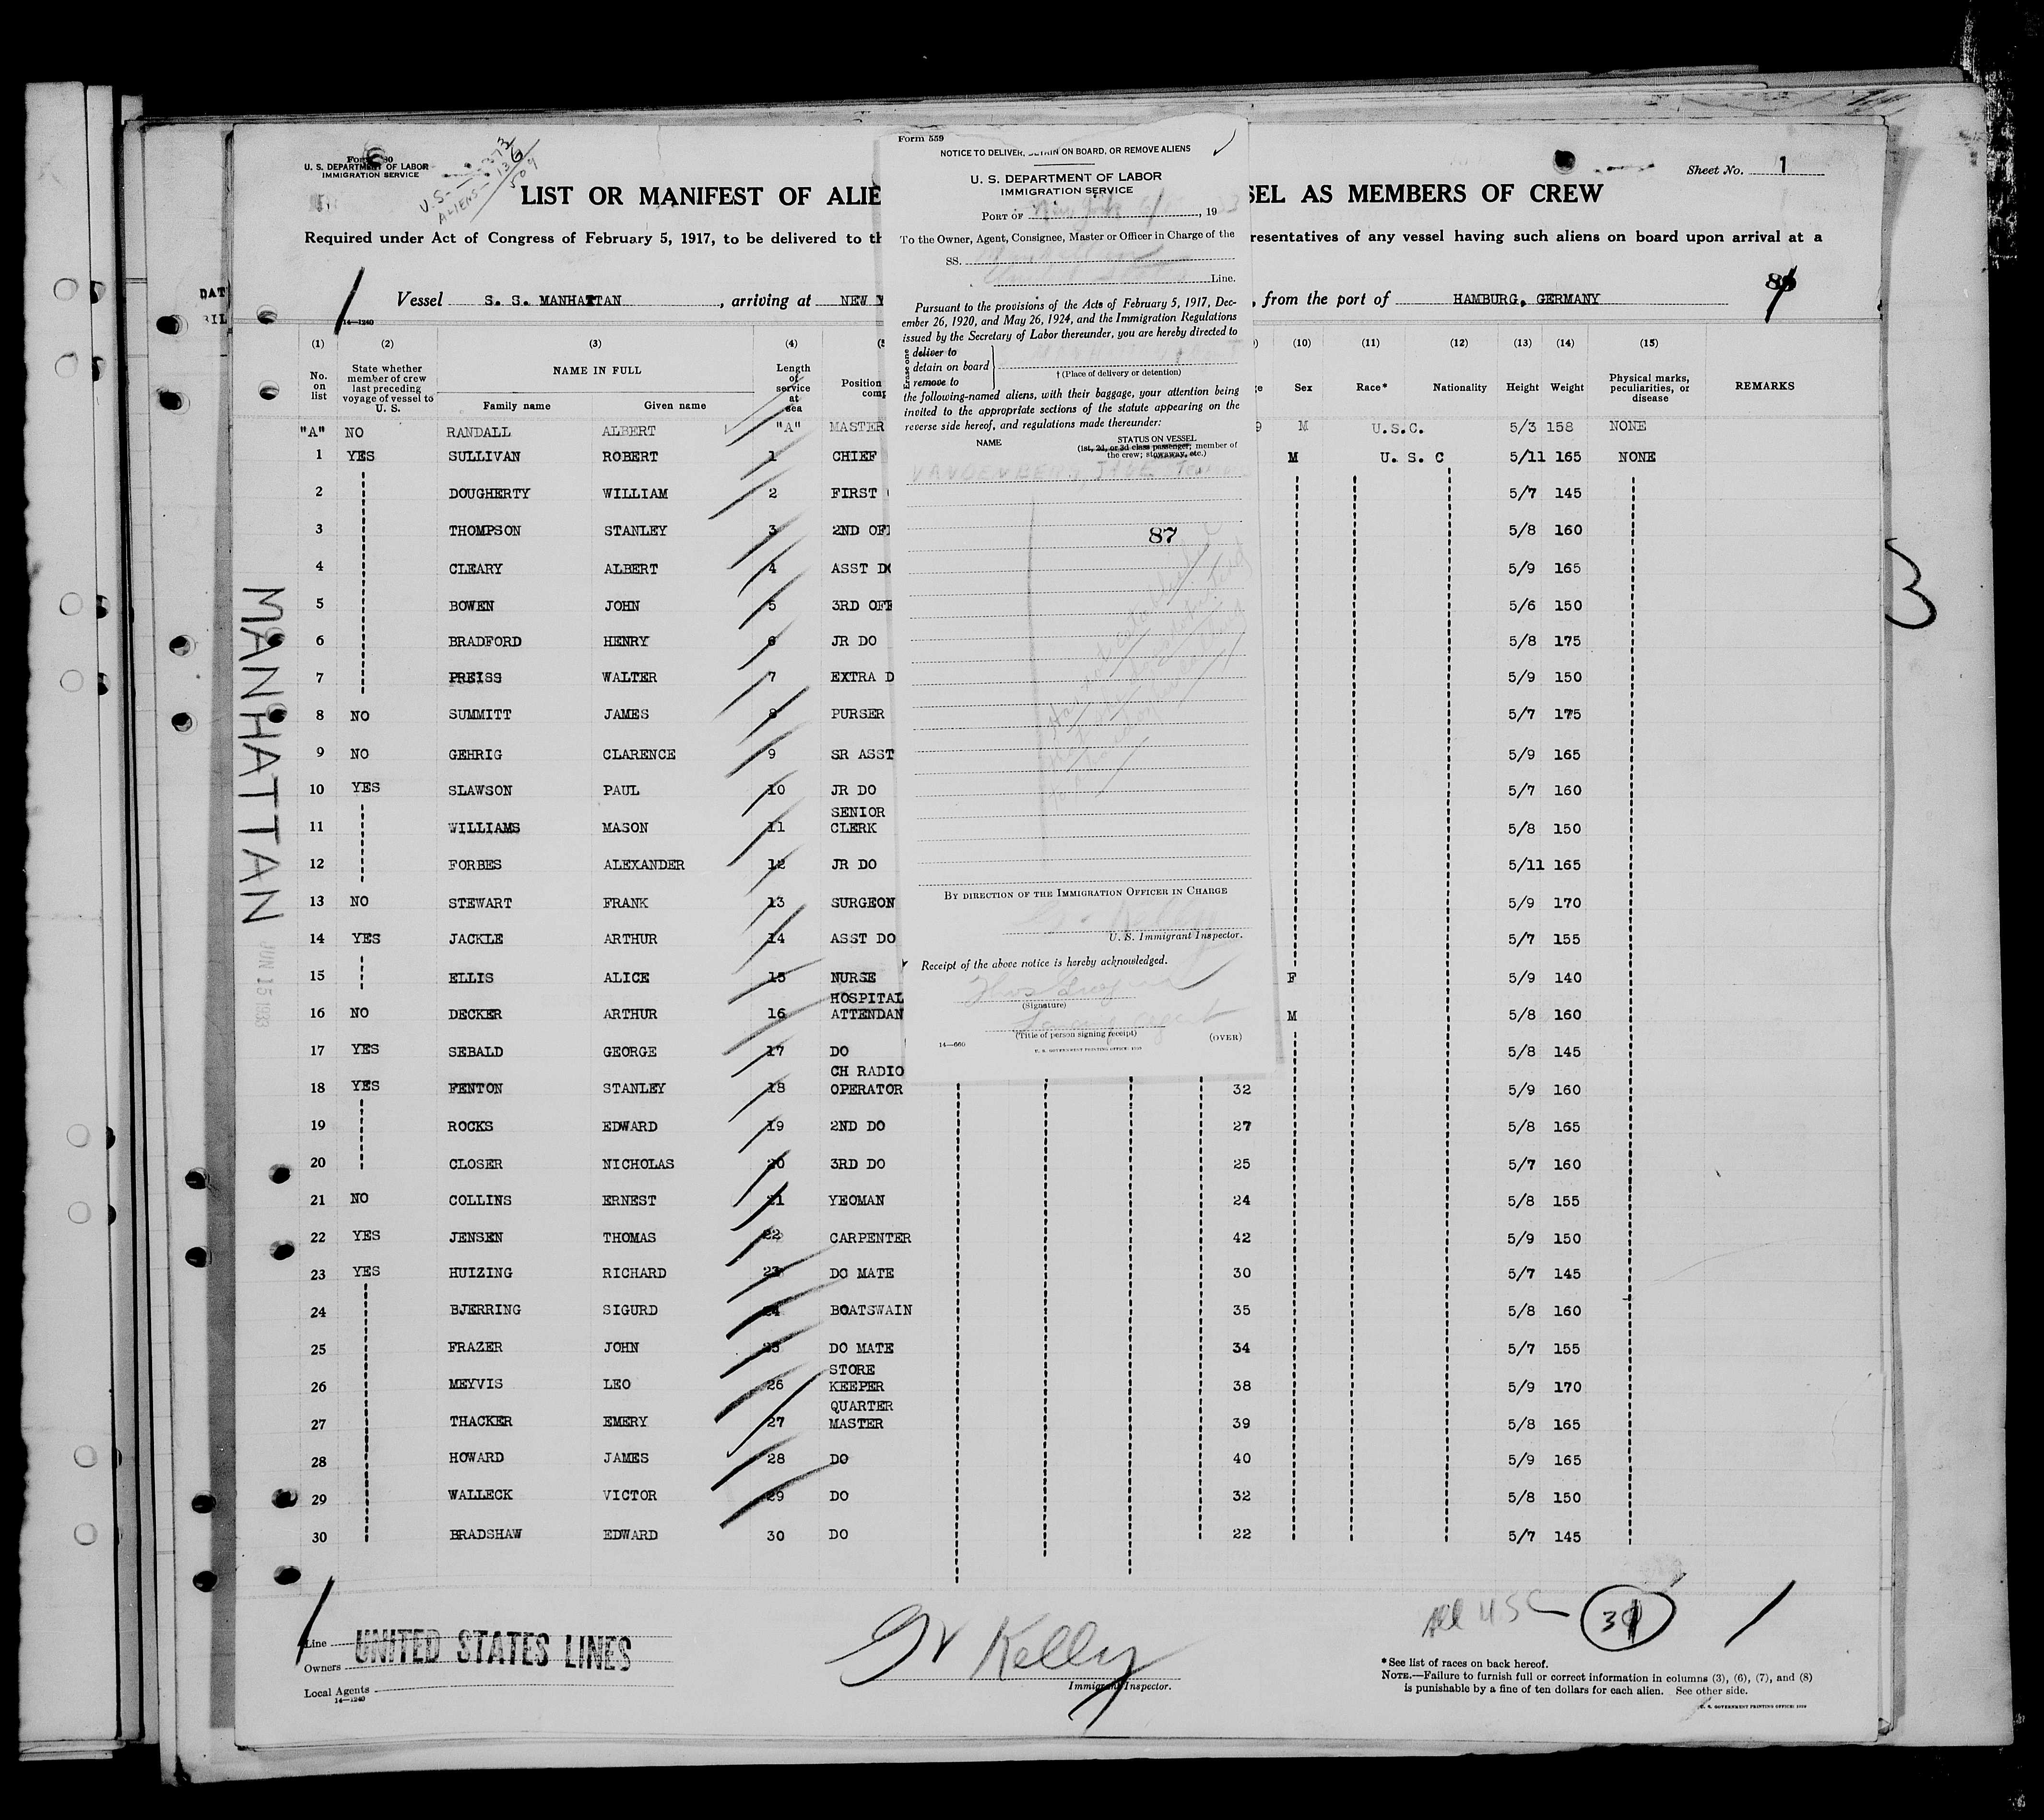 Form 559
NOTICE TO DELIVER, DETAIN ON BOARD, OR REMOVE ALIENS
U. S. DEPARTMENT OF LABOR
IMMIGRATION SERVICE
PORT OF New York, 19
To the Owner, Agent, Consignee, Master or Officer in Charge of the
SS.
Line.
Pursuant to the provisions of the Acts of February 5, 1917, Dec-
ember 26, 1920, and May 26, 1924, and the Immigration Regulations
issued by the Secretary of Labor thereunder, you are hereby directed to
Erase one
deliver to
detain on board
remove to
† (Place of delivery or detention)
the following-named aliens, with their baggage, your attention being
invited to the appropriate sections of the statute appearing on the
reverse side hereof, and regulations made thereunder:
NAME STATUS ON VESSEL
(1st, 2d, or 3d class passenger; member of
the crew; stowaway, etc.)
VANDENBERG,
87
BY DIRECTION OF THE IMMIGRATION OFFICER IN CHARGE
Kelly
U. S. Immigrant Inspector.
Receipt of the above notice is hereby acknowledged.
(Signature)
(Title of person signing receipt)
14—660 (OVER)
U. S. GOVERNMENT PRINTING OFFICE:
U. S. DEPARTMENT OF LABOR
IMMIGRATION SERVICE
U.S. — 373
ALIENS — 136
509
Sheet No. 1
LIST OR MANIFEST OF ALIE SEL AS MEMBERS OF CREW
Required under Act of Congress of February 5, 1917, to be delivered to th resentatives of any vessel having such aliens on board upon arrival at a
Vessel S. S. MANHATTAN, arriving at NEW Y , from the port of HAMBURG, GERMANY
14—1240
(1) (2) (3) (4) (10) (11) (12) (13) (14) (15)
No. on list State whether member of crew last preceding voyage of vessel to U. S. NAME IN FULL Family name Given name Length of service at sea Position Sex Race* Nationality Height Weight Physical marks, peculiarities, or disease REMARKS
"A" NO RANDALL ALBERT "A" MASTER M U.S.C. 5/3 158 NONE
1 YES SULLIVAN ROBERT 1 CHIEF M U. S. C 5/11 165 NONE
2 DOUGHERTY WILLIAM 2 FIRST 5/7 145
3 THOMPSON STANLEY 3 2ND OF 5/8 160
4 CLEARY ALBERT 4 ASST DO 5/9 165
5 BOWEN JOHN 5 3RD OFF 5/6 150
6 BRADFORD HENRY 6 JR DO 5/8 175
7 PREISS WALTER 7 EXTRA D 5/9 150
8 NO SUMMITT JAMES 8 PURSER 5/7 175
9 NO GEHRIG CLARENCE 9 SR ASST 5/9 165
10 YES SLAWSON PAUL 10 JR DO 5/7 160
11 WILLIAMS MASON 11 SENIOR CLERK 5/8 150
12 FORBES ALEXANDER 12 JR DO 5/11 165
13 NO STEWART FRANK 13 SURGEON 5/9 170
14 YES JACKLE ARTHUR 14 ASST DO 5/7 155
15 ELLIS ALICE 15 NURSE F 5/9 140
16 NO DECKER ARTHUR 16 HOSPITAL ATTENDAN M 5/8 160
17 YES SEBALD GEORGE 17 DO 5/8 145
18 YES FENTON STANLEY 18 CH RADIO OPERATOR 32 5/9 160
19 ROCKS EDWARD 19 2ND DO 27 5/8 165
20 CLOSER NICHOLAS 20 3RD DO 25 5/7 160
21 NO COLLINS ERNEST 21 YEOMAN 24 5/8 155
22 YES JENSEN THOMAS 22 CARPENTER 42 5/9 150
23 YES HUIZING RICHARD 23 DO MATE 30 5/7 145
24 BJERRING SIGURD 24 BOATSWAIN 35 5/8 160
25 FRAZER JOHN 25 DO MATE 34 5/7 155
26 MEYVIS LEO 26 STORE KEEPER 38 5/9 170
27 THACKER EMERY 27 QUARTER MASTER 39 5/8 165
28 HOWARD JAMES 28 DO 40 5/9 165
29 WALLECK VICTOR 29 DO 32 5/8 150
30 BRADSHAW EDWARD 30 DO 22 5/7 145
MANHATTAN
JUN 15 1933
3
All USC
Line UNITED STATES LINES
Owners
Local Agents
14—1240
Kelly
Immigrant Inspector.
*See list of races on back hereof.
NOTE.—Failure to furnish full or correct information in columns (3), (6), (7), and (8)
is punishable by a fine of ten dollars for each alien. See other side.
U. S. GOVERNMENT PRINTING OFFICE: